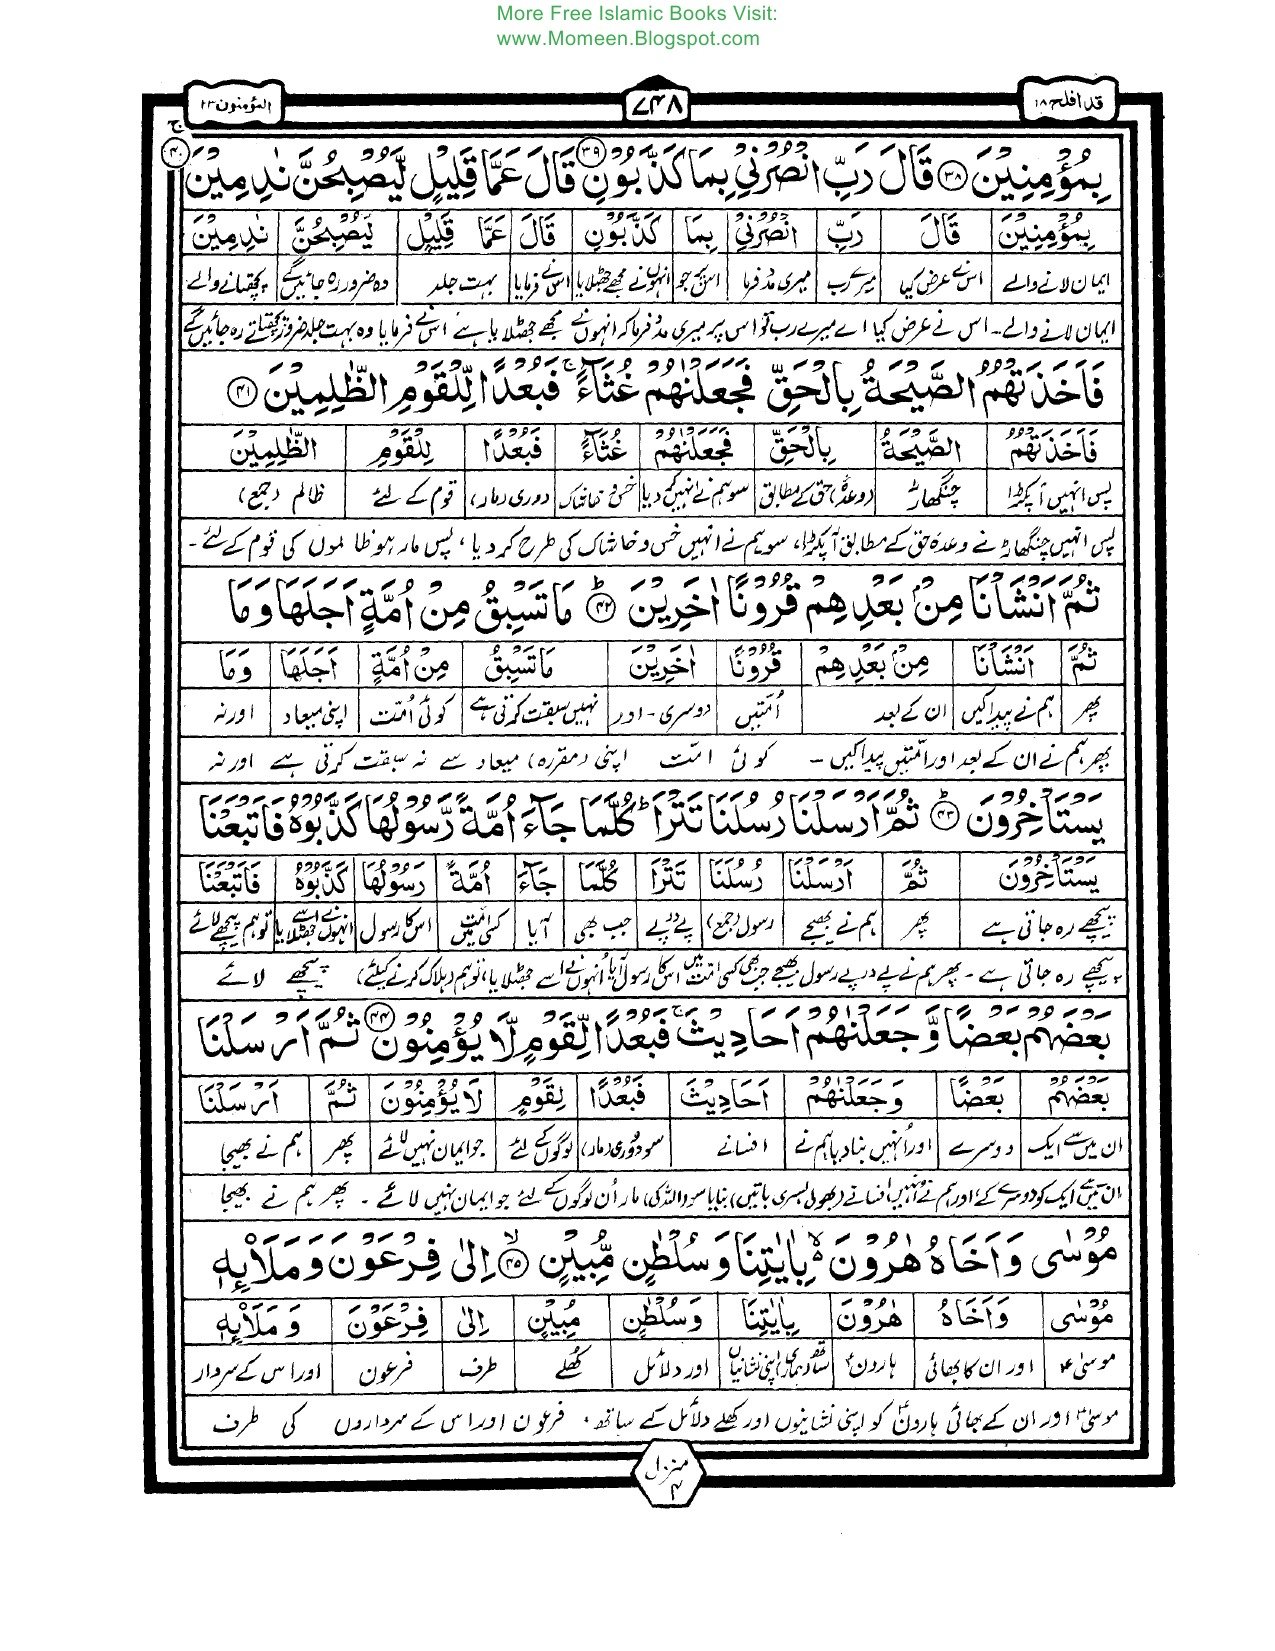 More Free Islamic Books Visit:
www.Momeen.Blogspot.com
قد افلح ۱۸
۷۴۸
المؤمنون ۲۳
بِمُؤْمِنِيْنَ ۳۸ قَالَ رَبِّ انْصُرْنِيْ بِمَا كَذَّبُوْنِ ۳۹ قَالَ عَمَّا قَلِيْلٍ لَّيُصْبِحُنَّ نٰدِمِيْنَ ۴۰ ج
بِمُؤْمِنِيْنَ قَالَ رَبِّ انْصُرْنِيْ بِمَا كَذَّبُوْنِ قَالَ عَمَّا قَلِيْلٍ لَيُصْبِحُنَّ نٰدِمِيْنَ
ایمان لانے والے اس نے عرض کیا میرے رب میری مدد فرما اس پر جو انہوں نے مجھے جھٹلایا اس نے فرمایا بہت جلد وہ ضرور رہ جائیں گے پچھتانے والے
ایمان لانے والے۔ اس نے عرض کیا اے میرے رب تو اس پر میری مدد فرما کہ انہوں نے مجھے جھٹلایا ہے اس نے فرمایا وہ بہت جلد ضرور پچھتاتے رہ جائیں گے
فَاَخَذَتْهُمُ الصَّيْحَةُ بِالْحَقِّ فَجَعَلْنٰهُمْ غُثَآءً ۚ فَبُعْدًا لِّلْقَوْمِ الظّٰلِمِيْنَ ۴۱
فَاَخَذَتْهُمُ الصَّيْحَةُ بِالْحَقِّ فَجَعَلْنٰهُمْ غُثَآءً فَبُعْدًا لِلْقَوْمِ الظّٰلِمِيْنَ
پس انہیں آپکڑا چنگھاڑ (وعدہ) حق کے مطابق سو ہم نے انہیں کر دیا خس و خاشاک دوری (مار) قوم کے لئے ظالم (جمع)
پس انہیں چنگھاڑ نے وعدہ حق کے مطابق آپکڑا، سو ہم نے انہیں خس و خاشاک کی طرح کر دیا، پس مار ہو ظالموں کی قوم کے لئے۔
ثُمَّ اَنْشَاْنَا مِنْۢ بَعْدِهِمْ قُرُوْنًا اٰخَرِيْنَ ۴۲ ط مَا تَسْبِقُ مِنْ اُمَّةٍ اَجَلَهَا وَمَا
ثُمَّ اَنْشَاْنَا مِنْۢ بَعْدِهِمْ قُرُوْنًا اٰخَرِيْنَ مَا تَسْبِقُ مِنْ اُمَّةٍ اَجَلَهَا وَمَا
پھر ہم نے پیدا کیں ان کے بعد اُمتیں دوسری - اور نہیں سبقت کرتی ہے کوئی اُمت اپنی میعاد اور نہ
پھر ہم نے ان کے بعد اور امتیں پیدا کیں ۔ کوئی امت اپنی (مقررہ) میعاد سے نہ سبقت کرتی ہے اور نہ
يَسْتَاْخِرُوْنَ ۴۳ ط ثُمَّ اَرْسَلْنَا رُسُلَنَا تَتْرَا ط كُلَّمَا جَآءَ اُمَّةً رَّسُوْلُهَا كَذَّبُوْهُ فَاَتْبَعْنَا
يَسْتَاْخِرُوْنَ ثُمَّ اَرْسَلْنَا رُسُلَنَا تَتْرَا كُلَّمَا جَآءَ اُمَّةً رَسُوْلُهَا كَذَّبُوْهُ فَاَتْبَعْنَا
پیچھے رہ جاتی ہے پھر ہم نے بھیجے رسول (جمع) پے درپے جب بھی آیا کسی امت میں اس کا رسول انہوں نے اسے جھٹلایا تو ہم پیچھے لائے
پیچھے رہ جاتی ہے۔ پھر ہم نے پے درپے رسول بھیجے جب بھی کسی امت میں اس کا رسول آیا اُنہوں نے اسے جھٹلایا، تو ہم (ہلاک کرنے کیلئے) پیچھے لائے
بَعْضَهُمْ بَعْضًا وَّجَعَلْنٰهُمْ اَحَادِيْثَ ۚ فَبُعْدًا لِّقَوْمٍ لَّا يُؤْمِنُوْنَ ۴۴ ثُمَّ اَرْسَلْنَا
بَعْضَهُمْ بَعْضًا وَجَعَلْنٰهُمْ اَحَادِيْثَ فَبُعْدًا لِقَوْمٍ لَا يُؤْمِنُوْنَ ثُمَّ اَرْسَلْنَا
ان میں سے ایک دوسرے اور انہیں بنا دیا ہم نے افسانے سو دوری (مار) لوگوں کے لئے جو ایمان نہیں لائے پھر ہم نے بھیجا
ان میں سے ایک کو دوسرے کے، اور ہم نے انہیں افسانے (بھولی بسری باتیں) بنایا سو (اللہ کی) مار اُن لوگوں کے لئے جو ایمان نہیں لائے ۔ پھر ہم نے بھیجا
مُوْسٰى وَاَخَاهُ هٰرُوْنَ ۙ بِاٰيٰتِنَا وَسُلْطٰنٍ مُّبِيْنٍ ۴۵ لا اِلٰى فِرْعَوْنَ وَمَلَا۟ئِهٖ
مُوْسٰى وَاَخَاهُ هٰرُوْنَ بِاٰيٰتِنَا وَسُلْطٰنٍ مُبِيْنٍ اِلٰى فِرْعَوْنَ وَمَلَا۟ئِهٖ
موسیٰؑ اور ان کا بھائی ہارونؑ ساتھ (ہماری) اپنی نشانیاں اور دلائل کھلے طرف فرعون اور اس کے سردار
موسیٰؑ اور ان کے بھائی ہارونؑ کو اپنی نشانیوں اور کھلے دلائل کے ساتھ، فرعون اور اس کے سرداروں کی طرف
منزل ۴